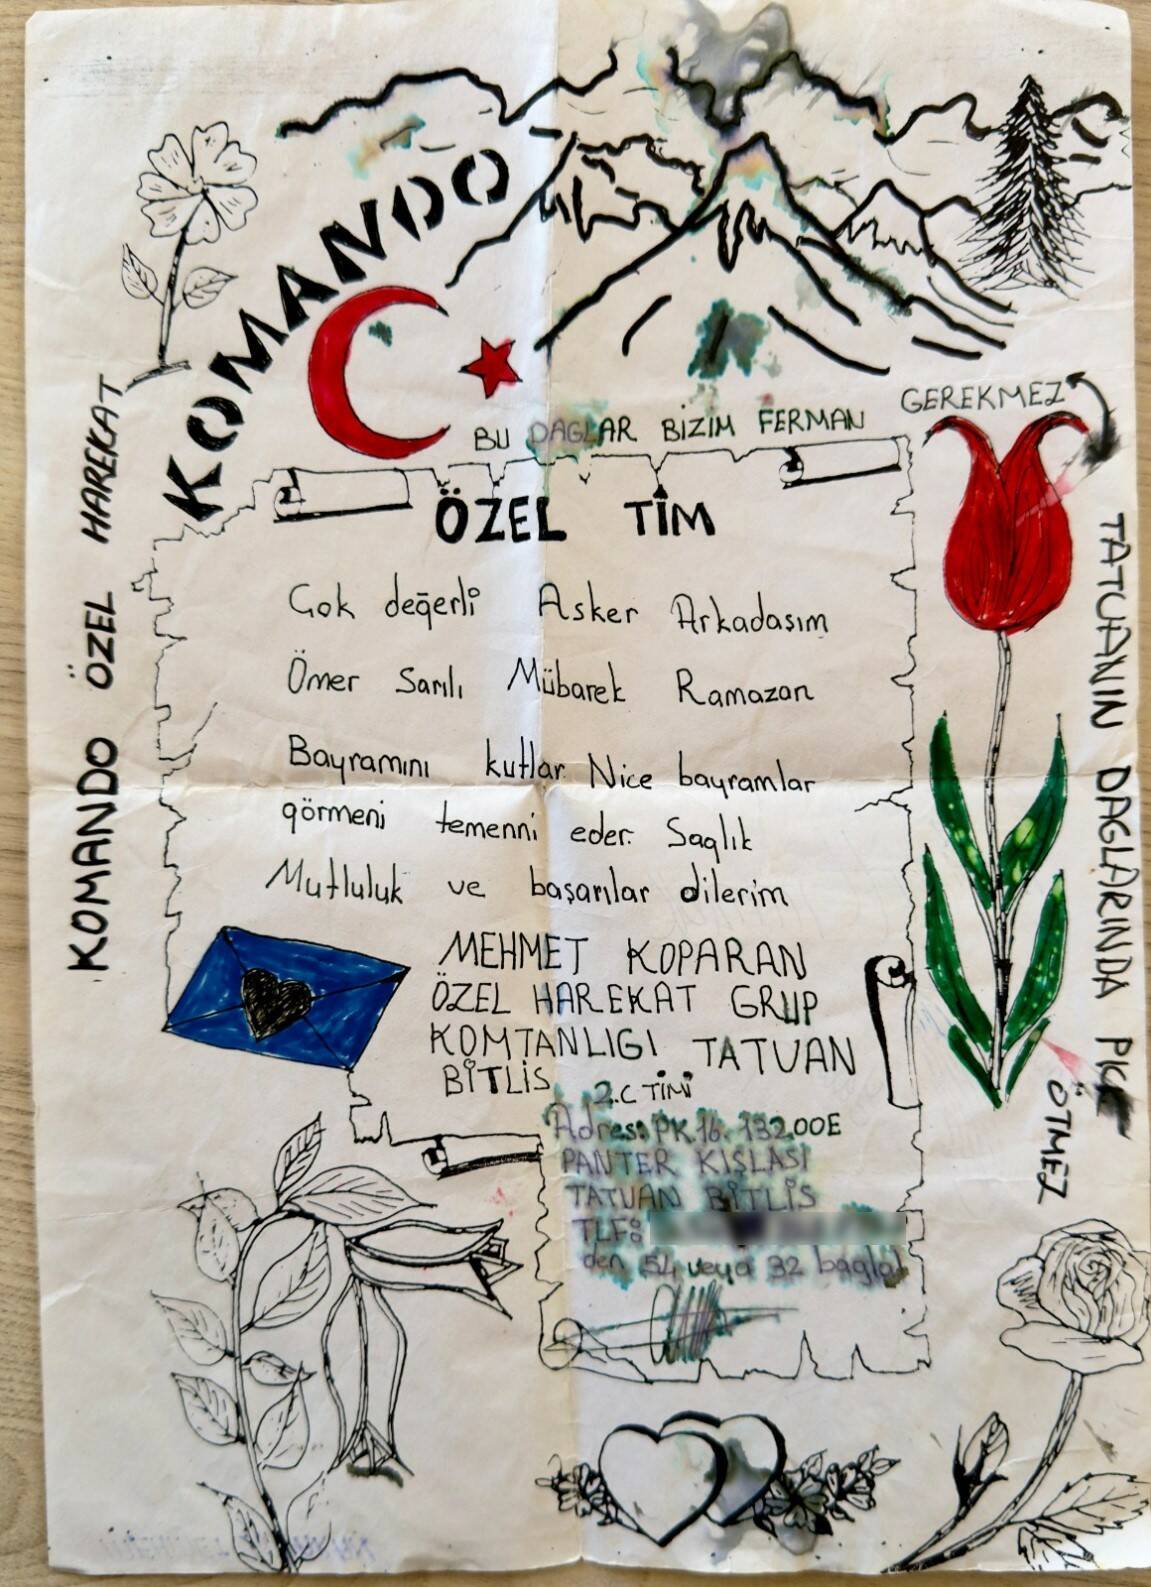 KOMANDO
BU DAGLAR BİZİM FERMAN
GEREKMEZ
ÖZEL TİM
Çok değerli Asker Arkadaşım
Ömer Sarılı Mübarek Ramazan
Bayramını kutlar Nice bayramlar
görmeni temenni eder. Saglık
Mutluluk ve başarılar dilerim
MEHMET KOPARAN
ÖZEL HAREKAT GRUP
KOMTANLIGI TATUAN
BİTLİS 2.C TİMİ
Adres: PK.16. 13200E
PANTER KIŞLASI
TATUAN BİTLİS
TLF:
den 54 veya 32 bagla
KOMANDO ÖZEL HAREKAT
TATUANIN DAGLARINDA PKK
ÖTMEZ